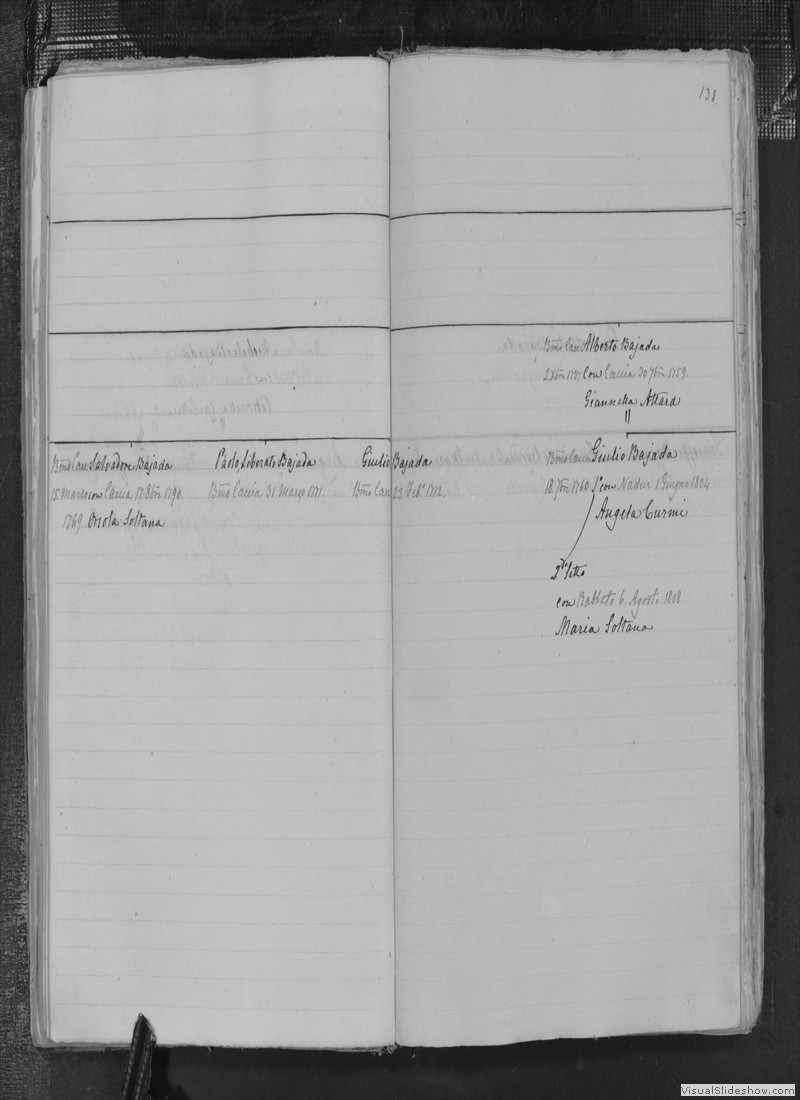 138.
Bmo Cau Alberto Bajada
2 Xbre 1737 con Caccia 30 7bre 1759.
Giannella Attard
"
Bmo Cau Salvadore Bajada
15 Marzo con Caccia 17 8bre 1790
1769 Orsola Soltana
Paolo Liborato Bajada
Bmo Caccia 31 Marzo 1771.
Giulio Bajada
Bmo Cau 23 Feb.o 1772.
Bmo Cau Giulio Bajada
18 7bre 1760 1o con Nadur 1 Giugno 1804
Angela Curmi
2do letto
con Rabbato 6 Agosto 1808
Maria Soltana
VisualSlideshow.com